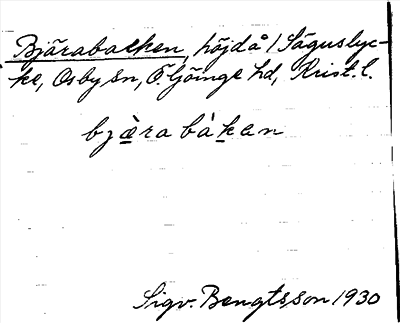 Bjärabacken, höjd å / Säguslyc-
ke, Osby sn, Ö Göinge hd, Krist. l.
bjæ̀rabàkan
Sigv. Bengtsson 1930